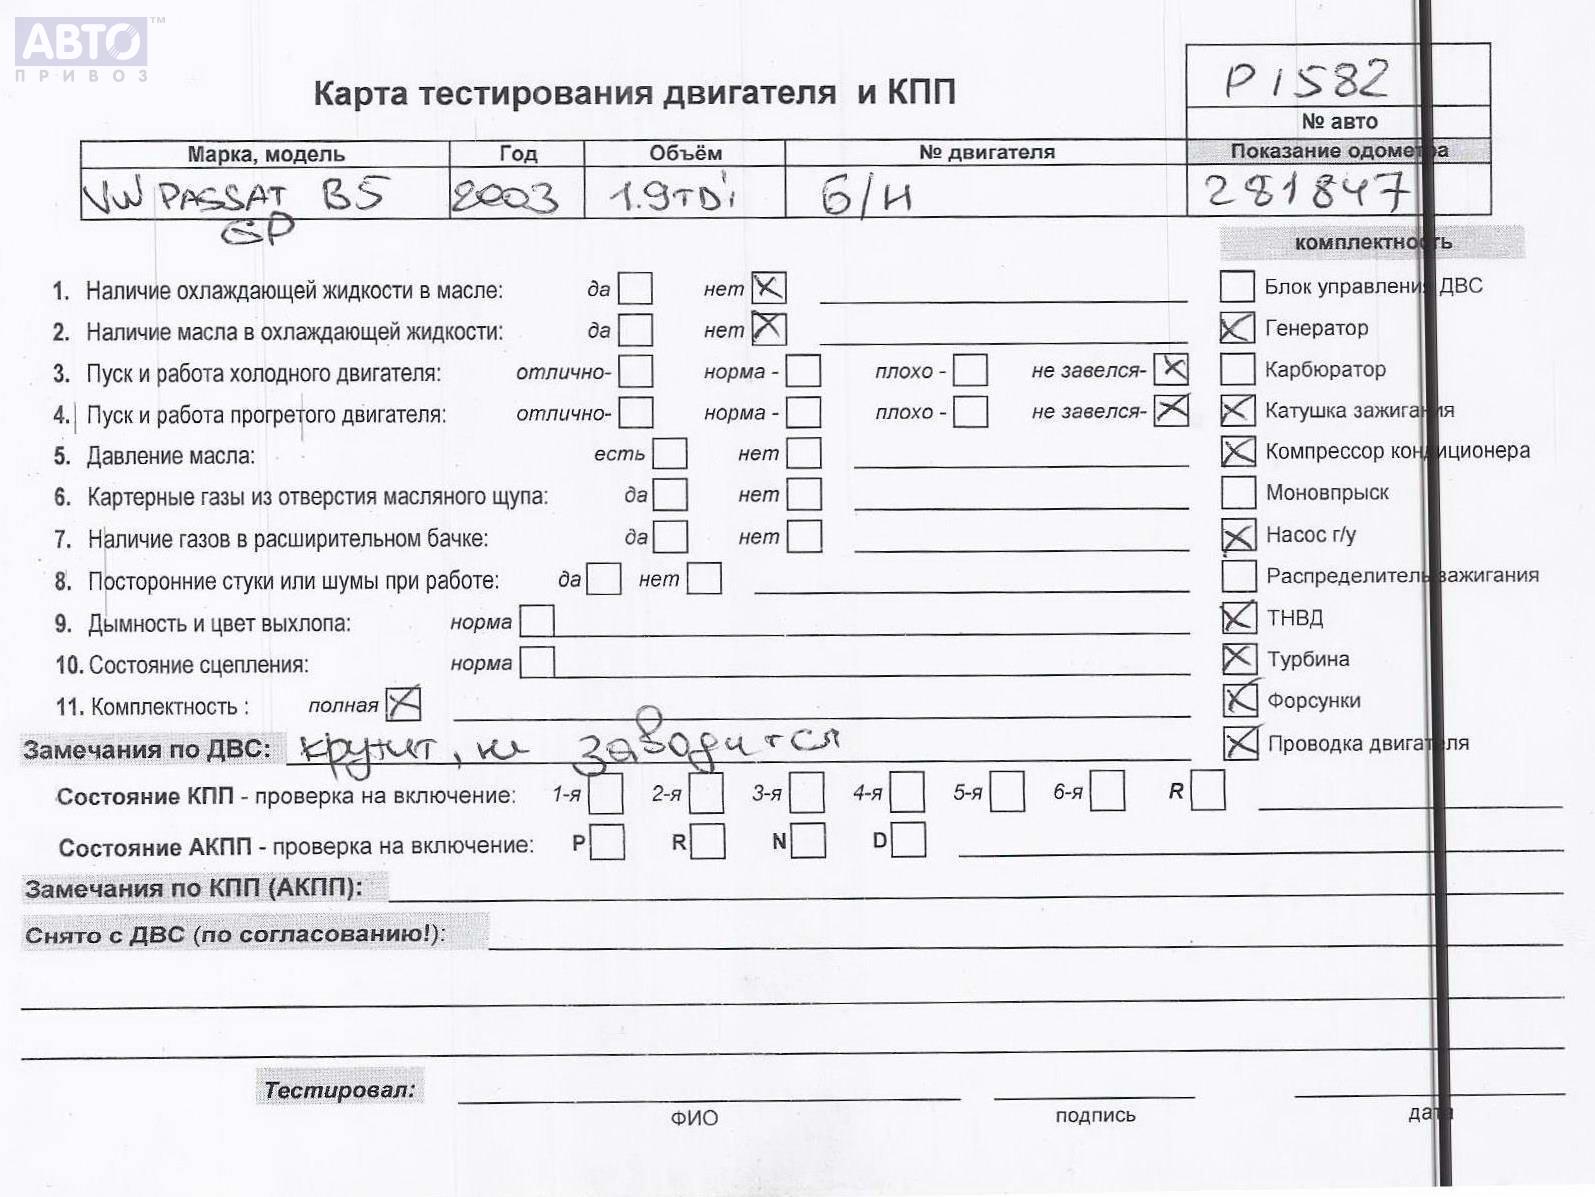 АВТО ™
ПРИВОЗ
Карта тестирования двигателя и КПП
P1582
№ авто
Марка, модель Год Объём № двигателя Показание одометра
VW PASSAT B5 2003 1.9TDi Б/Н 281847
GP
комплектность
1. Наличие охлаждающей жидкости в масле: да нет Блок управления ДВС
2. Наличие масла в охлаждающей жидкости: да нет Генератор
3. Пуск и работа холодного двигателя: отлично- норма - плохо - не завелся- Карбюратор
4. Пуск и работа прогретого двигателя: отлично- норма - плохо - не завелся- Катушка зажигания
5. Давление масла: есть нет Компрессор кондиционера
6. Картерные газы из отверстия масляного щупа: да нет Моновпрыск
7. Наличие газов в расширительном бачке: да нет Насос г/у
8. Посторонние стуки или шумы при работе: да нет Распределитель зажигания
9. Дымность и цвет выхлопа: норма ТНВД
10. Состояние сцепления: норма Турбина
11. Комплектность : полная Форсунки
Замечания по ДВС: крутит, не заводится Проводка двигателя
Состояние КПП - проверка на включение: 1-я 2-я 3-я 4-я 5-я 6-я R
Состояние АКПП - проверка на включение: P R N D
Замечания по КПП (АКПП):
Снято с ДВС (по согласованию!):
Тестировал:
ФИО подпись дата